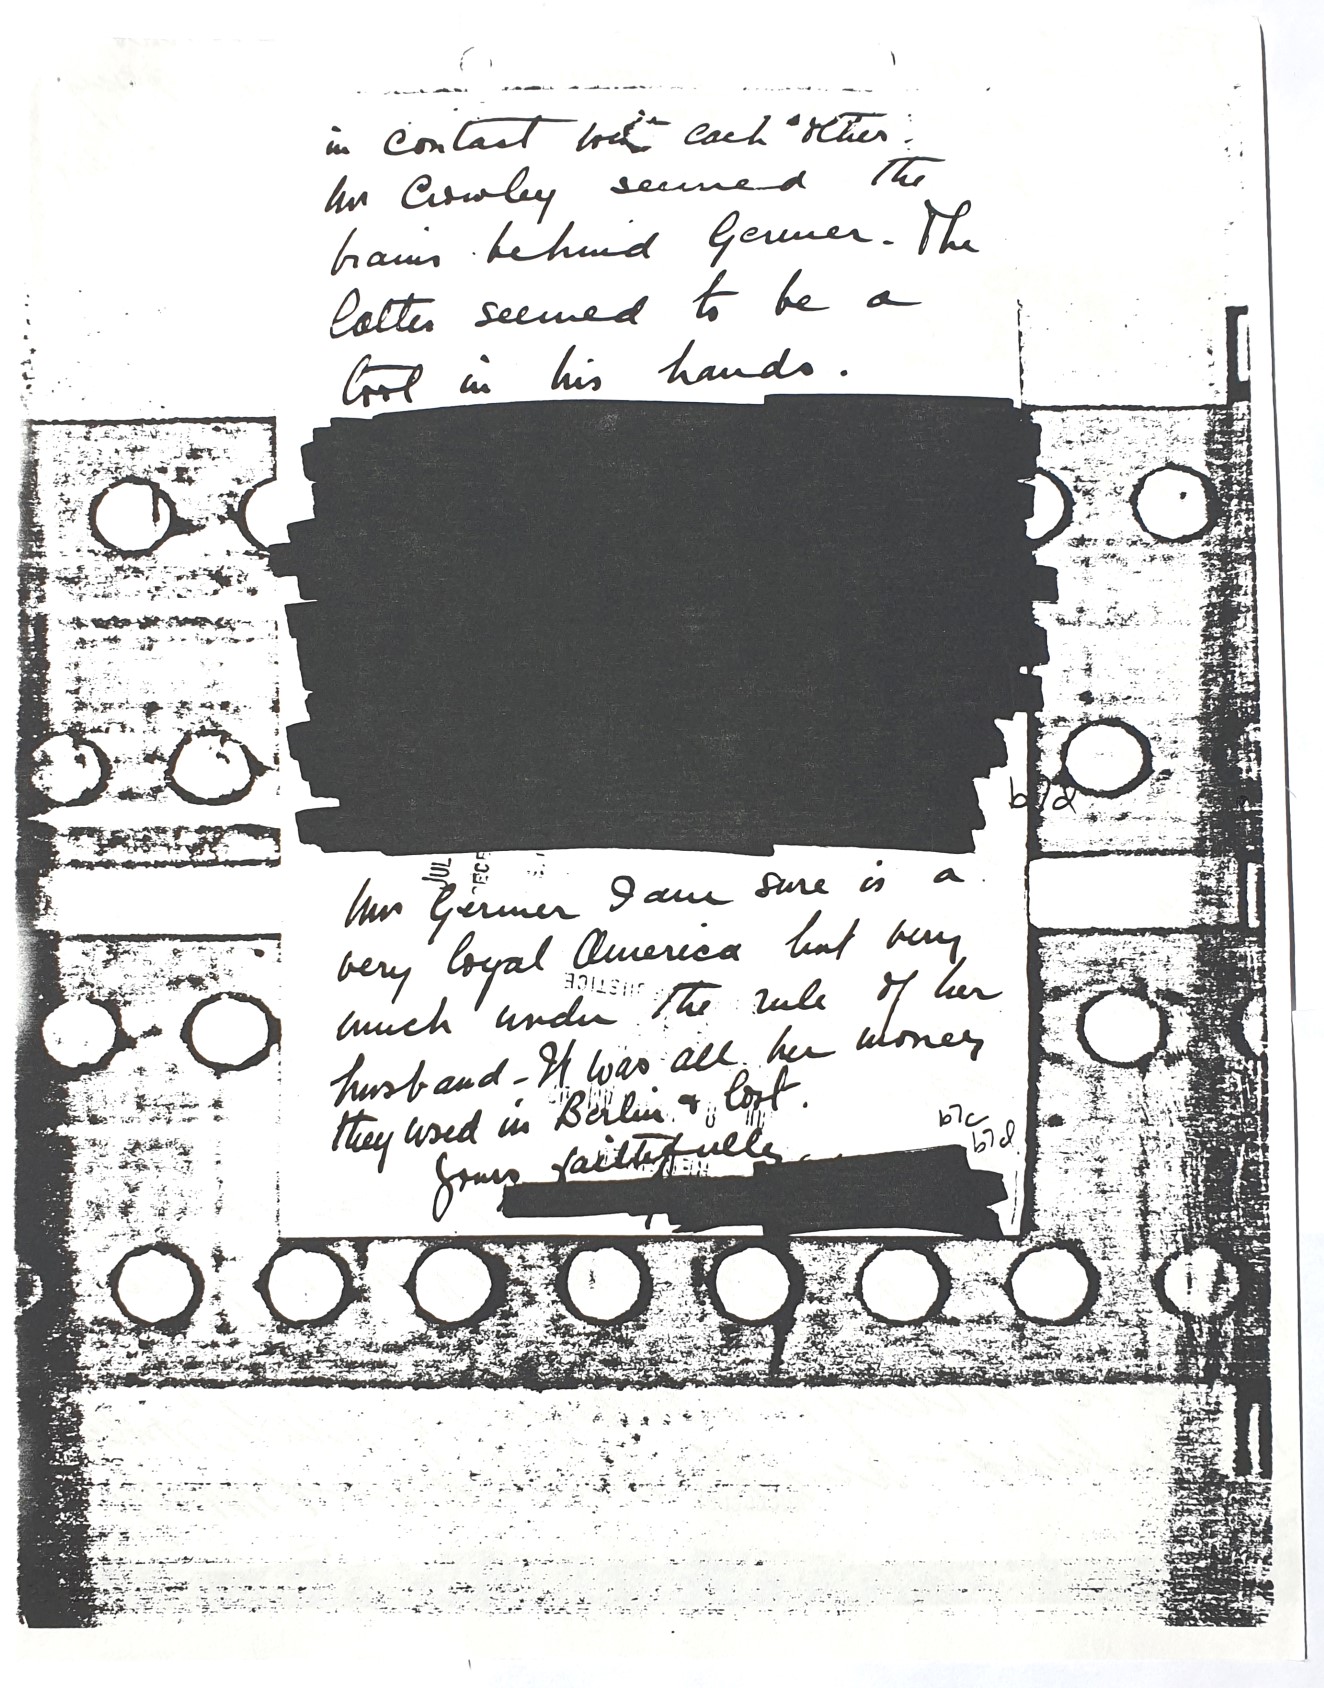 in contact with each other.
Mr Crowley seemed the
brains behind Germer. The
latter seemed to be a
tool in his hands.
b7d
JUL
Mrs Germer I am sure is a
very loyal America but very
much under the rule of her
husband - It was all her money
they used in Berlin & lost.
Yours faithfully
b7c
b7d